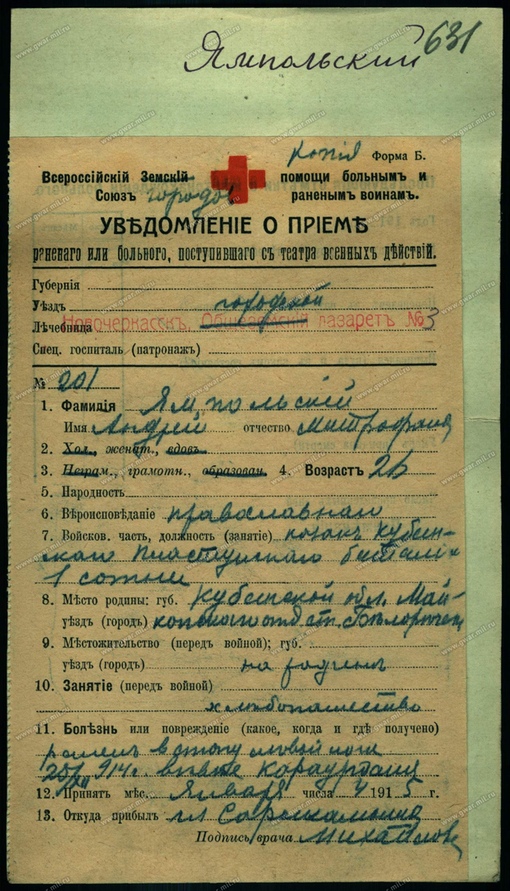 631
Ямпольский
Копія Форма Б.
Всероссійскій Земскій помощи больнымъ и
Союзъ городов раненымъ воинамъ.
УВѢДОМЛЕНІЕ О ПРІЕМѢ
раненаго или больного, поступившаго съ театра военныхъ дѣйствій.
Губернія
Уѣздъ городской
Лѣчебница Новочеркасск. лазаретъ № 3
Спец. госпиталь (патронажъ)
№ 201
1. Фамилія Ямпольскій
Имя Андрей отчество Митрофана
2. Хол., женат., вдовъ.
3. Неграм., грамотн., образован. 4. Возрастъ 26
5. Народность
6. Вѣроисповѣданіе православная
7. Войсков. часть, должность (занятіе) козакъ Кубан-
скаго Пластунскаго баталі
1 сотни
8. Мѣсто родины: губ. Кубанской обл. Май-
уѣздъ (городъ) копскаго отд. ст. Бѣлорѣчен
9. Мѣстожительство (передъ войной); губ.
уѣздъ (городъ) на родинѣ
10. Занятіе (передъ войной)
хлѣбопашество
11. Болѣзнь или поврежденіе (какое, когда и гдѣ получено)
раненъ в стопу лѣвой ноги
914г. Караургана
12. Принятъ мѣс. Января числа 4 1915 г.
13. Откуда прибылъ Сарыкамыша
Подпись врача Михайлов
www.gwar.mil.ru